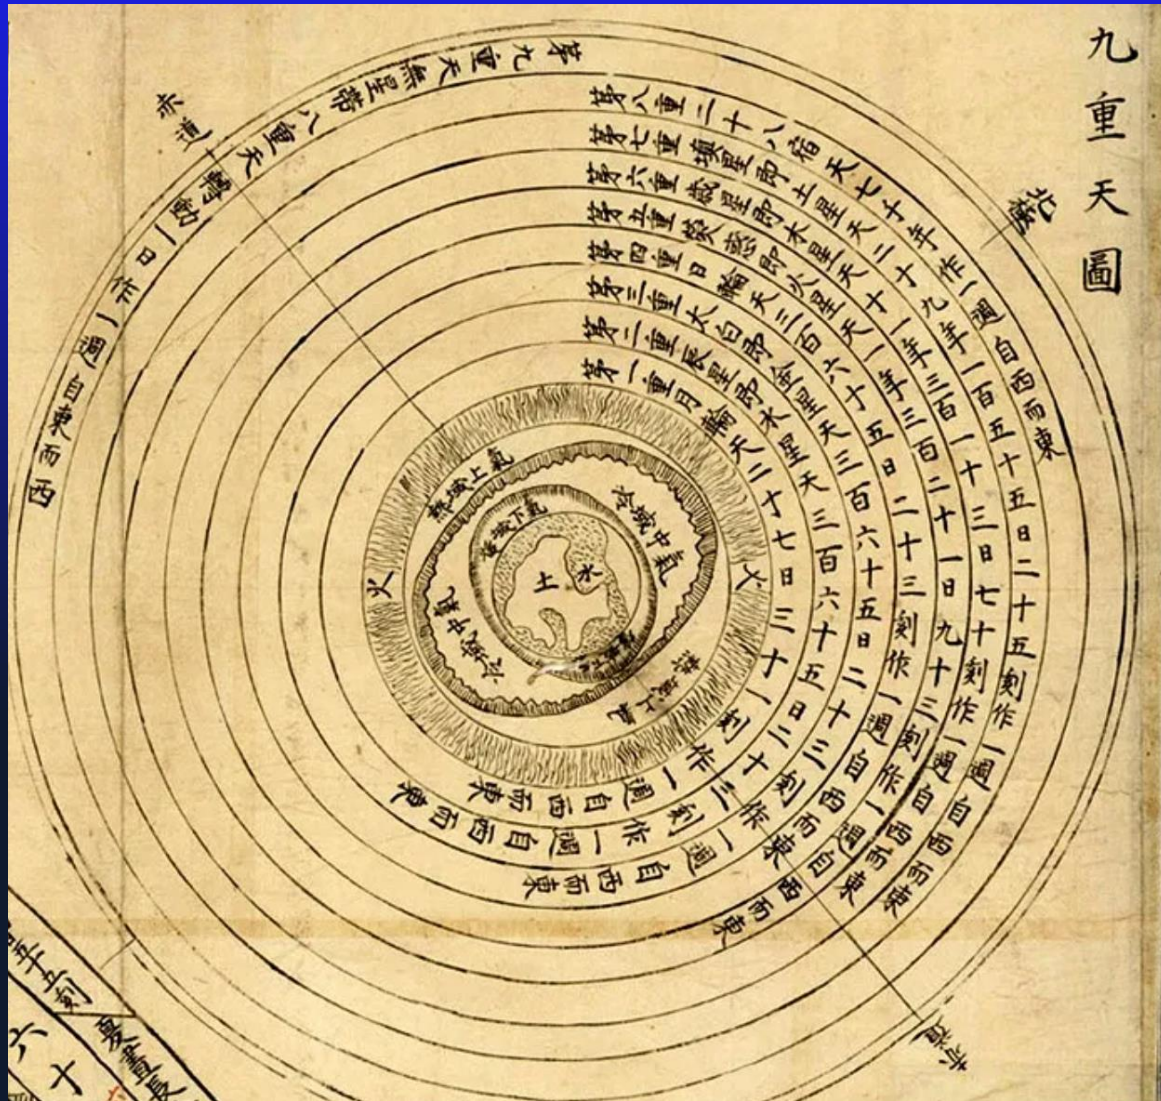 九重天圖
北極
赤道
第九重天無星帶八重天轉動一日作一週自東而西
第八重二十八宿天七千年作一週自西而東
第七重填星即土星天二十九年一百五十五日二十五刻作一週自西而東
第六重歲星即木星天十一年三百一十三日七十刻作一週自西而東
第五重熒惑即火星天一年三百二十一日九十三刻作一週自西而東
第四重日輪天三百六十五日二十三刻作一週自西而東
第三重太白即金星天三百六十五日二十三刻作一週自西而東
第二重辰星即水星天三百六十五日二十三刻作一週自西而東
第一重月輪天二十七日三十一刻作一週自西而東
火
火
熱域上氣
冷域中氣
煖域下氣
土
水
冷域中氣
熱域上氣
赤道
五刻
夏晝長
六十